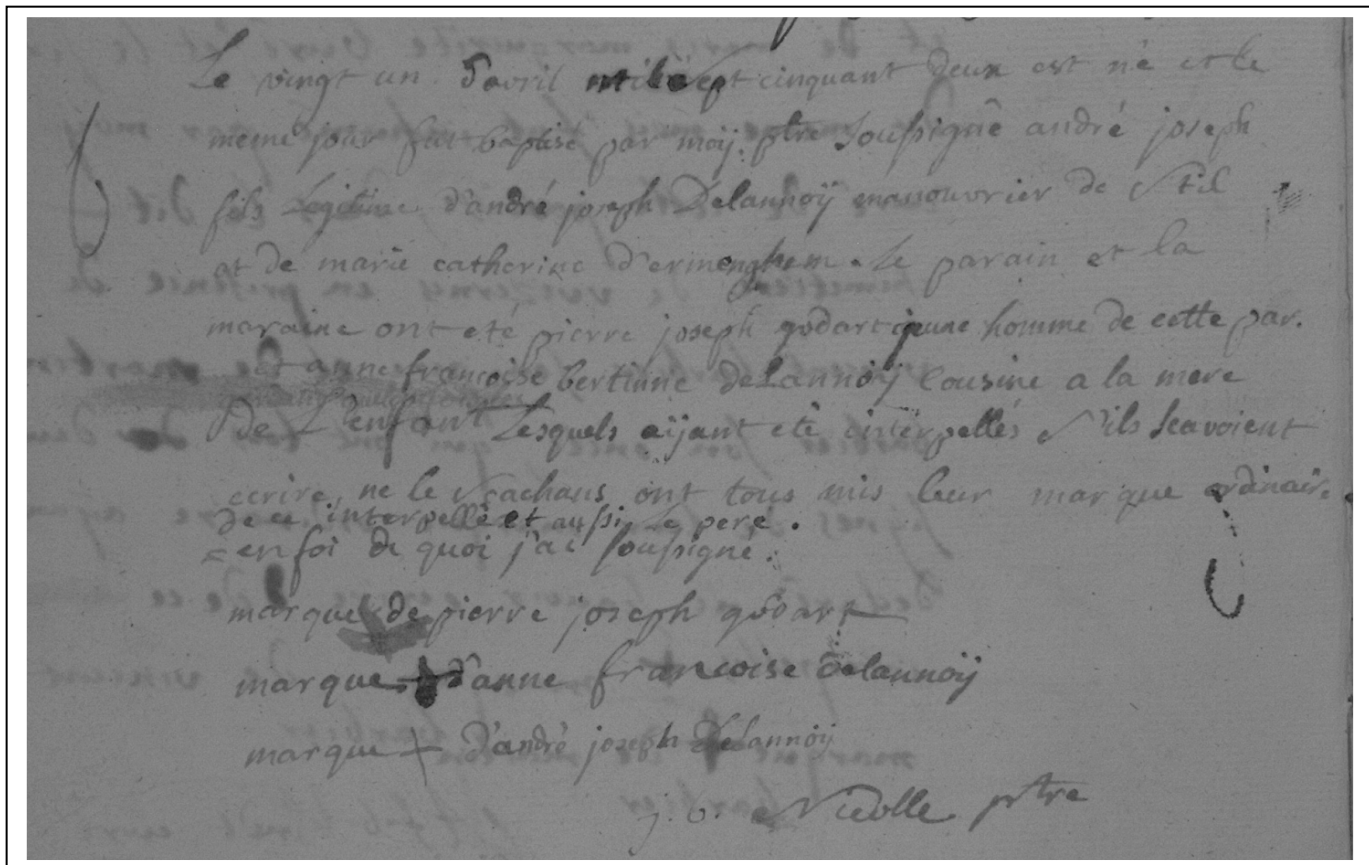 Le vingt un d'avril mil sept cinquant deux est né et le
meme jour fut baptisé par moÿ ptre soussigné andré joseph
fils Legitime d'andré joseph Delannoÿ manouvrier de
et de marie catherine d'ermenghem. Le parain et la
maraine ont eté pierre joseph godart jeune homme de cette par.
et anne francoisse bertinne deLannoÿ Cousine a la mere
De L'enfant Lesquels aÿant eté interpellés s'ils scavoient
ecrire, ne le scachans ont tous mis leur marque ordinaire
de ce interpellé et aussi Le pere.
= en foi de quoi j'ai soussigné.
marque de pierre joseph godart
marque + d'anne francoise delannoÿ
marque + d'andré joseph delannoÿ
j. o. Nicolle ptre